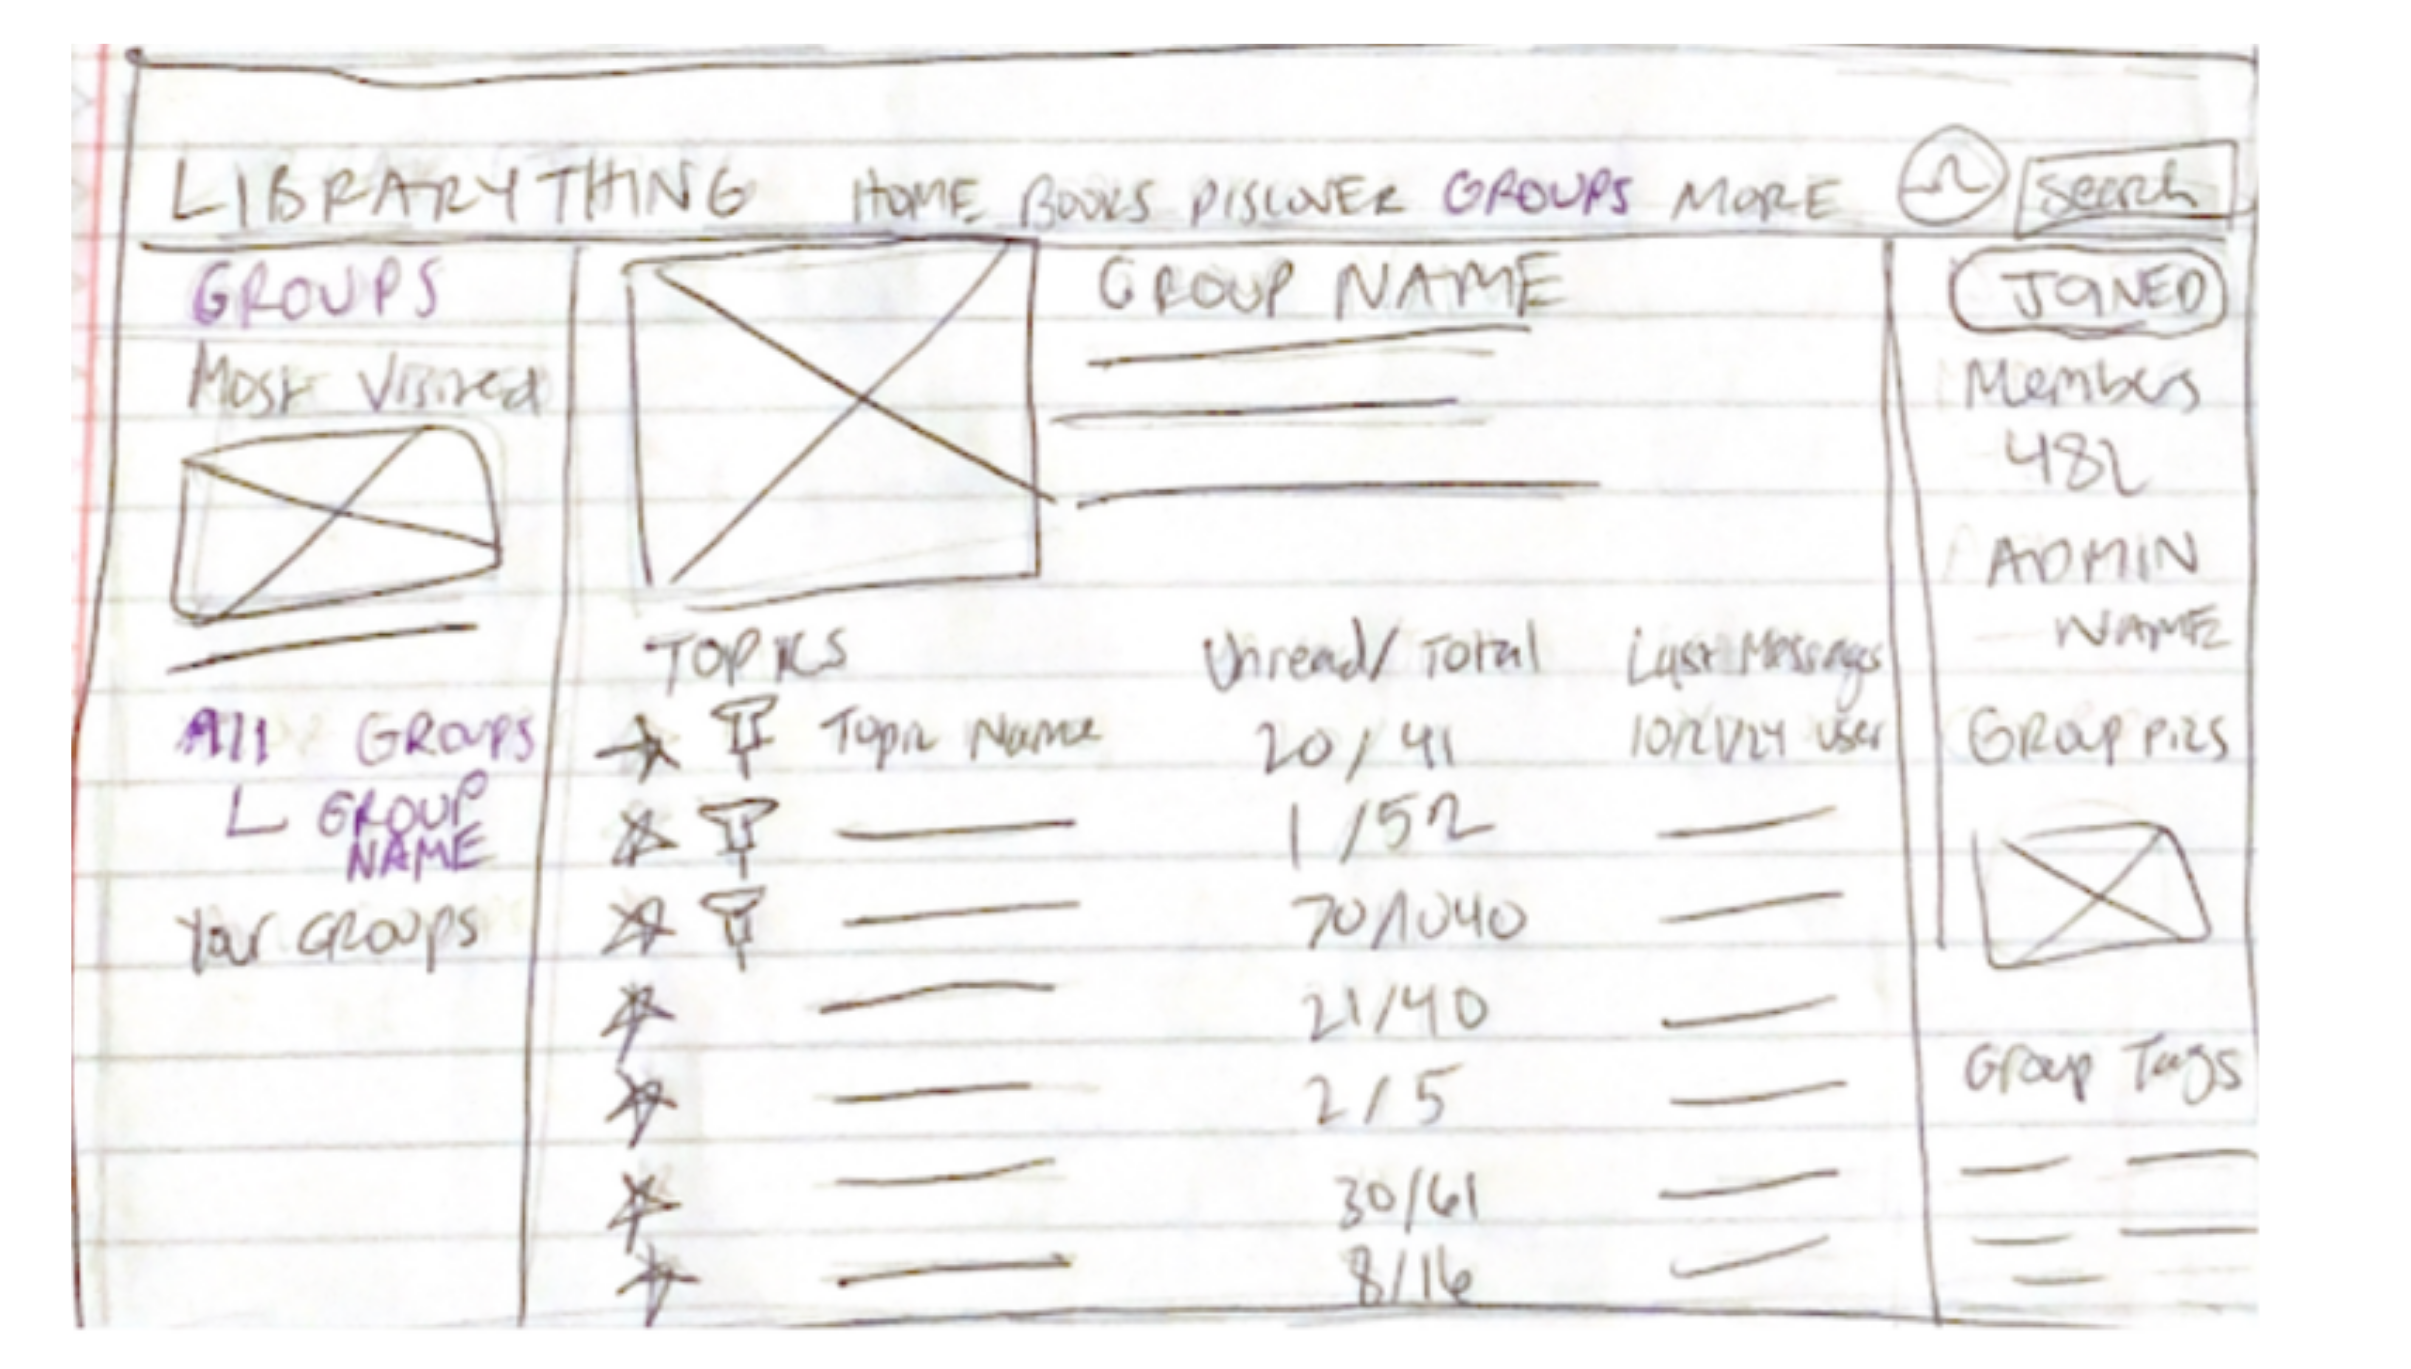 LIBRARYTHING HOME BOOKS DISCOVER GROUPS MORE Search
GROUPS
Most Visited
All GROUPS
GROUP
NAME
Your GROUPS
GROUP NAME
TOPICS Unread/Total Last Messages
Topic Name 20/41 10/21/24 user
1/52
70/1040
21/40
2/5
30/61
8/16
JOINED
Members
482
ADMIN
NAME
GROUP PICS
Group Tags